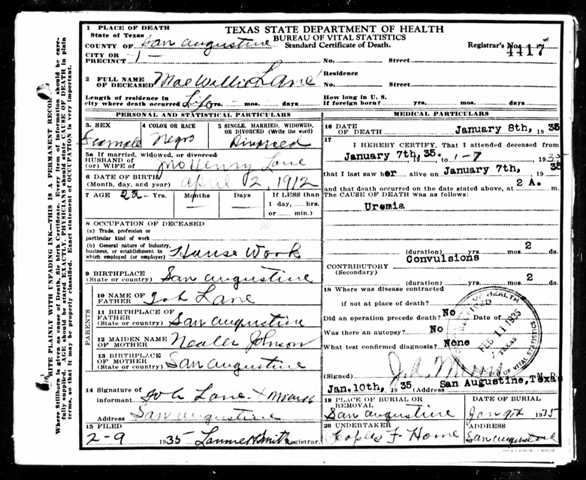 1 PLACE OF DEATH
TEXAS STATE DEPARTMENT OF HEALTH
State of Texas
BUREAU OF VITAL STATISTICS
COUNTY OF San Augustine
Standard Certificate of Death.
Registrar's No. 4417
CITY OR PRECINCT 1
No. Street
2 FULL NAME OF DECEASED Mae Willie Lane
Residence No. Street
Length of residence in city where death occurred Life yrs. mos. days
How long in U. S. if foreign born? yrs. mos. days
PERSONAL AND STATISTICAL PARTICULARS
MEDICAL PARTICULARS
3. SEX
4 COLOR OR RACE
5 SINGLE, MARRIED, WIDOWED, OR DIVORCED (Write the word)
Female Negro Divorced
5a If married, widowed, or divorced
HUSBAND OF (or) WIFE OF Henry Lane
6 DATE OF BIRTH (Month, day, and year) April 2, 1912
7 AGE 22 Yrs. Months Days If LESS than 1 day, hrs. or min.)
8 OCCUPATION OF DECEASED
(a) Trade, profession or particular kind of work
(b) General nature of Industry, business, or establishment in which employed (or employer) House Work
9 BIRTHPLACE (State or country) San Augustine
PARENTS
10 NAME OF FATHER Lane
11 BIRTHPLACE OF FATHER (State or country) San Augustine
12 MAIDEN NAME OF MOTHER Johnson
13 BIRTHPLACE OF MOTHER (State or country) San Augustine
14 Signature of informant Lane
Address San Augustine
15 FILED 2-9 1935 Smith Registrar.
16 DATE OF DEATH January 8th, 1935
17 I HEREBY CERTIFY, That I attended deceased from
January 7th, 35, to 1-7 1935
that I last saw her alive on January 7th, 1935
and that death occurred on the date stated above, at 2 A. m.
The CAUSE OF DEATH was as follows:
Uremia
(duration) yrs. mos. 2 ds.
CONTRIBUTORY (Secondary) Convulsions
(duration) yrs. mos. 2 ds.
18 Where was disease contracted if not at place of death?
Did an operation precede death? No
Was there an autopsy? No
What test confirmed diagnosis? None
(Signed)
Jan. 10th, 1935 San Augustine, Texas
FEB 11 1935
19 PLACE OF BURIAL OR REMOVAL San Augustine
DATE OF BURIAL
20 UNDERTAKER F. Home
ADDRESS San Augustine
WRITE PLAINLY WITH UNFADING INK—THIS IS A PERMANENT RECORD